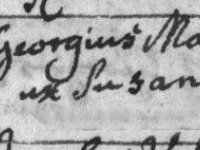 Georgius Ma
ux Susan